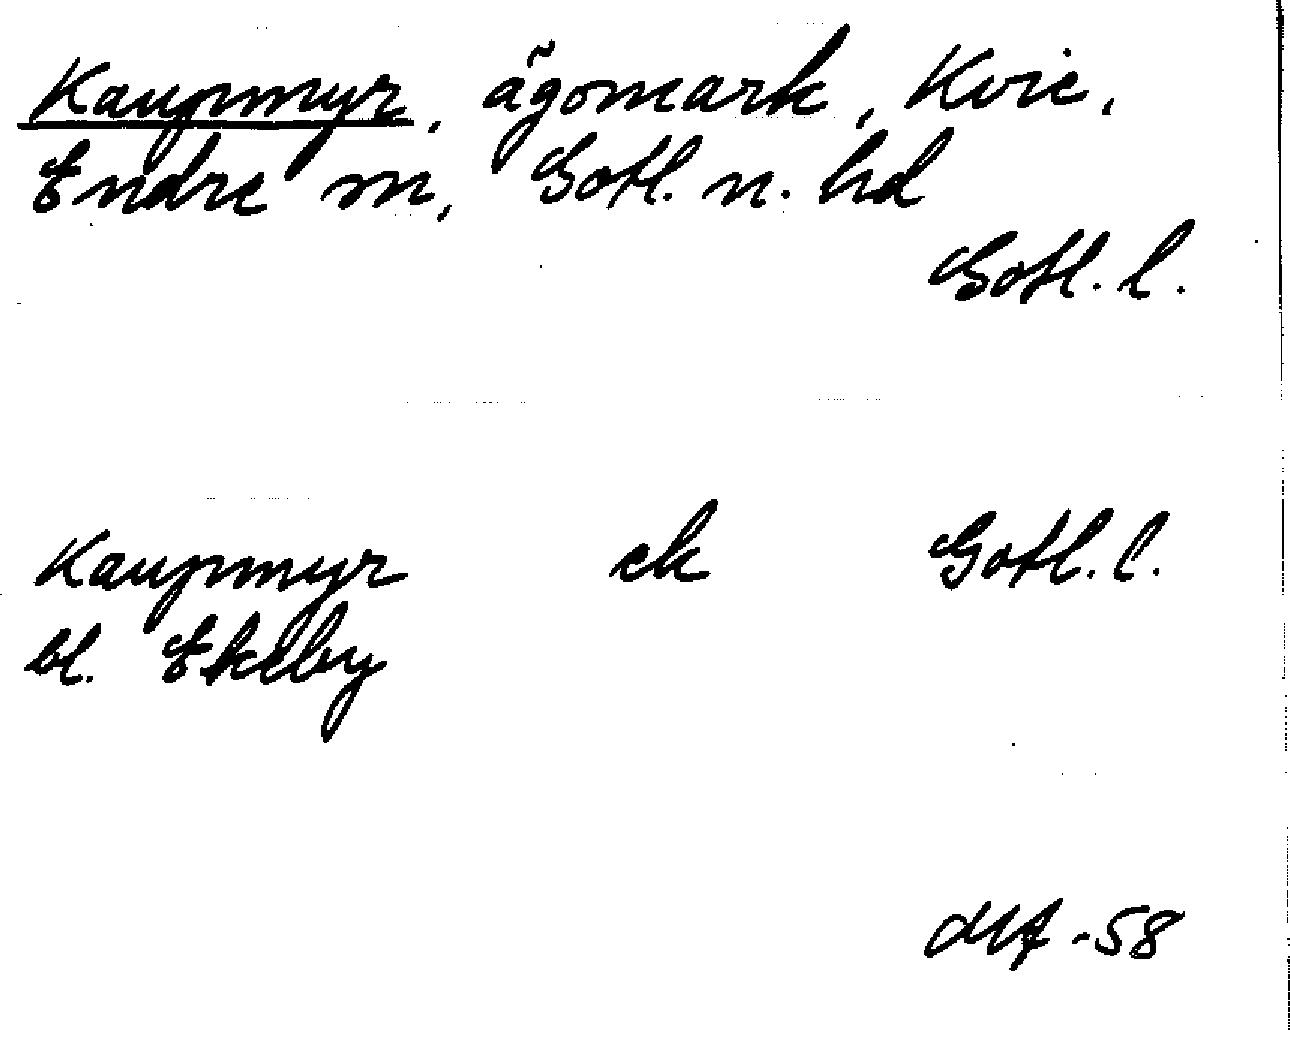 Kaupmyr, ägomark, Kvie,
Endre sn, Gotl. n. hd
Gotl. l.
Kaupmyr ek Gotl. l.
bl. Ekeby
-58